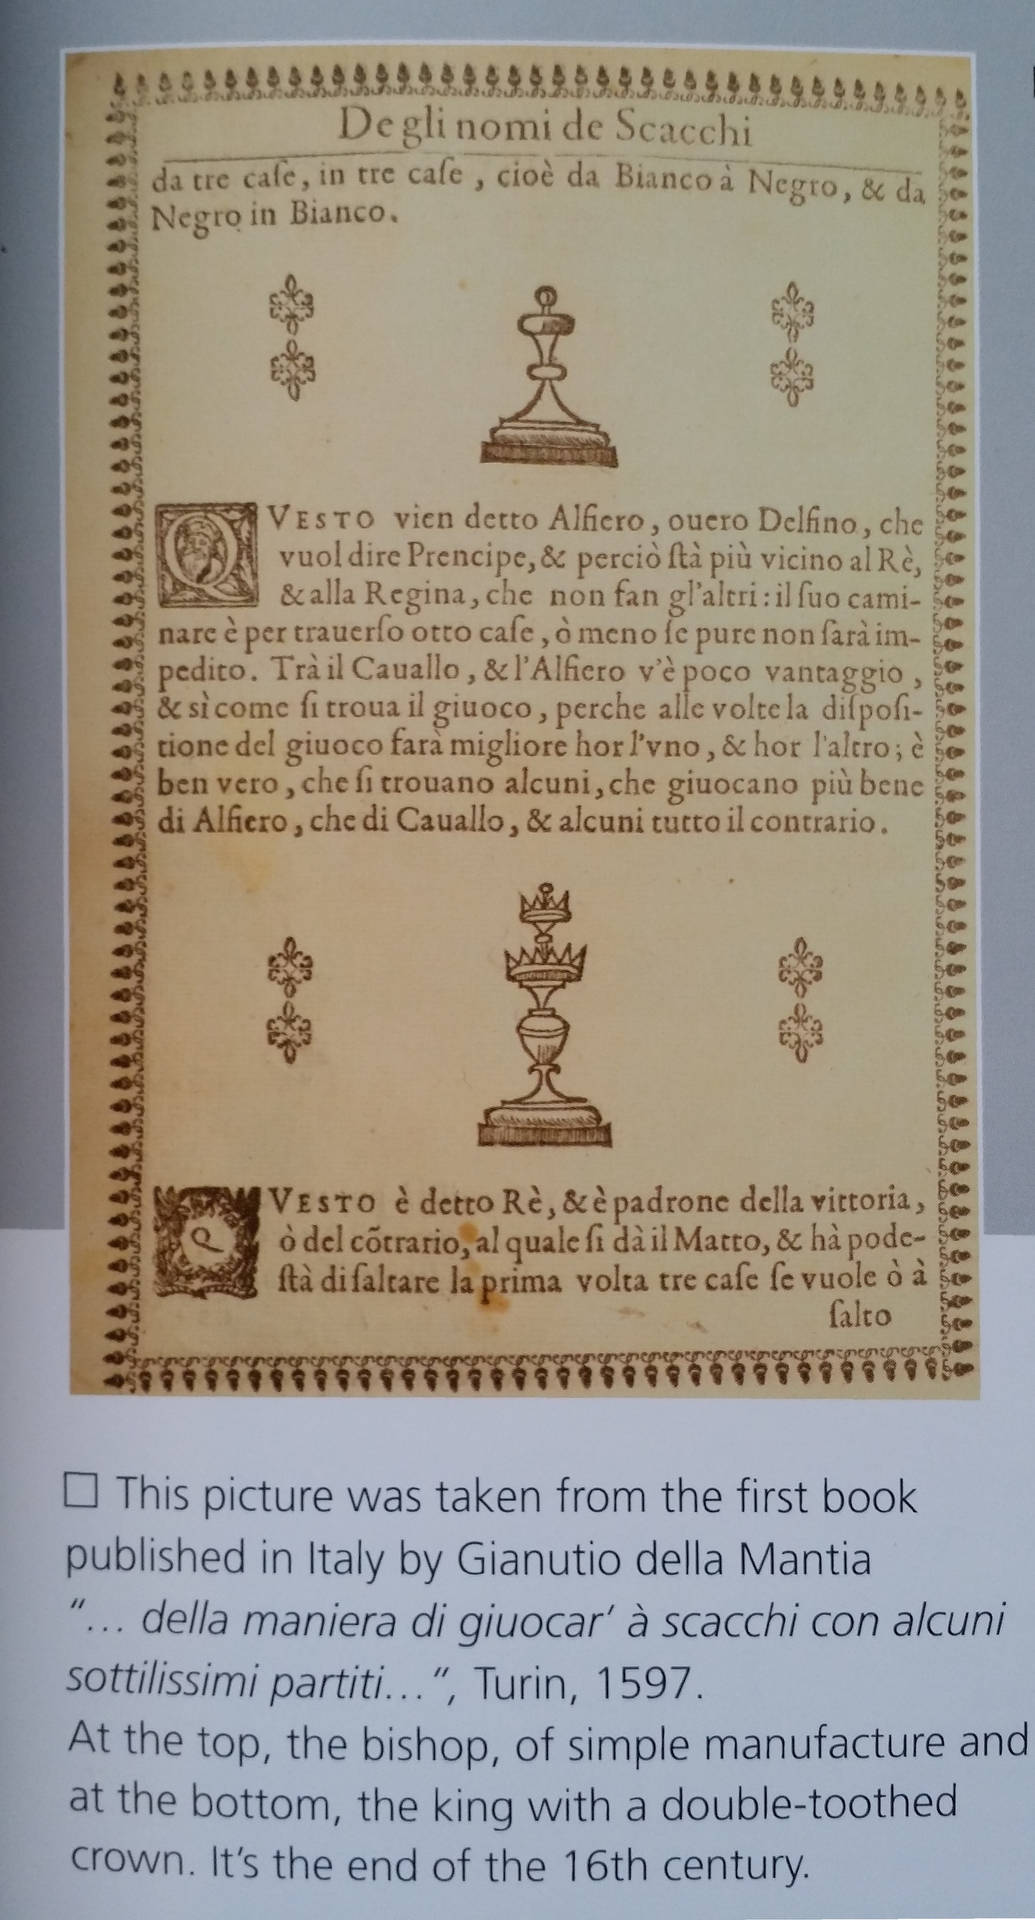 De gli nomi de Scacchi
da tre caſe, in tre caſe, cioè da Bianco à Negro, & da
Negro in Bianco.
QVESTO vien detto Alfiero, ouero Delfino, che
vuol dire Prencipe, & perciò ſtà più vicino al Rè,
& alla Regina, che non fan gl'altri: il ſuo cami-
nare è per trauerſo otto caſe, ò meno ſe pure non ſarà im-
pedito. Trà il Cauallo, & l'Alfiero v'è poco vantaggio,
& sì come ſi troua il giuoco, perche alle volte la diſpoſi-
tione del giuoco farà migliore hor l'vno, & hor l'altro; è
ben vero, che ſi trouano alcuni, che giuocano più bene
di Alfiero, che di Cauallo, & alcuni tutto il contrario.
QVESTO è detto Rè, & è padrone della vittoria,
ò del cõtrario, al quale ſi dà il Matto, & hà pode-
ſtà di ſaltare la prima volta tre caſe ſe vuole ò à
ſalto
□ This picture was taken from the first book
published in Italy by Gianutio della Mantia
"... della maniera di giuocar' à scacchi con alcuni
sottilissimi partiti...", Turin, 1597.
At the top, the bishop, of simple manufacture and
at the bottom, the king with a double-toothed
crown. It's the end of the 16th century.